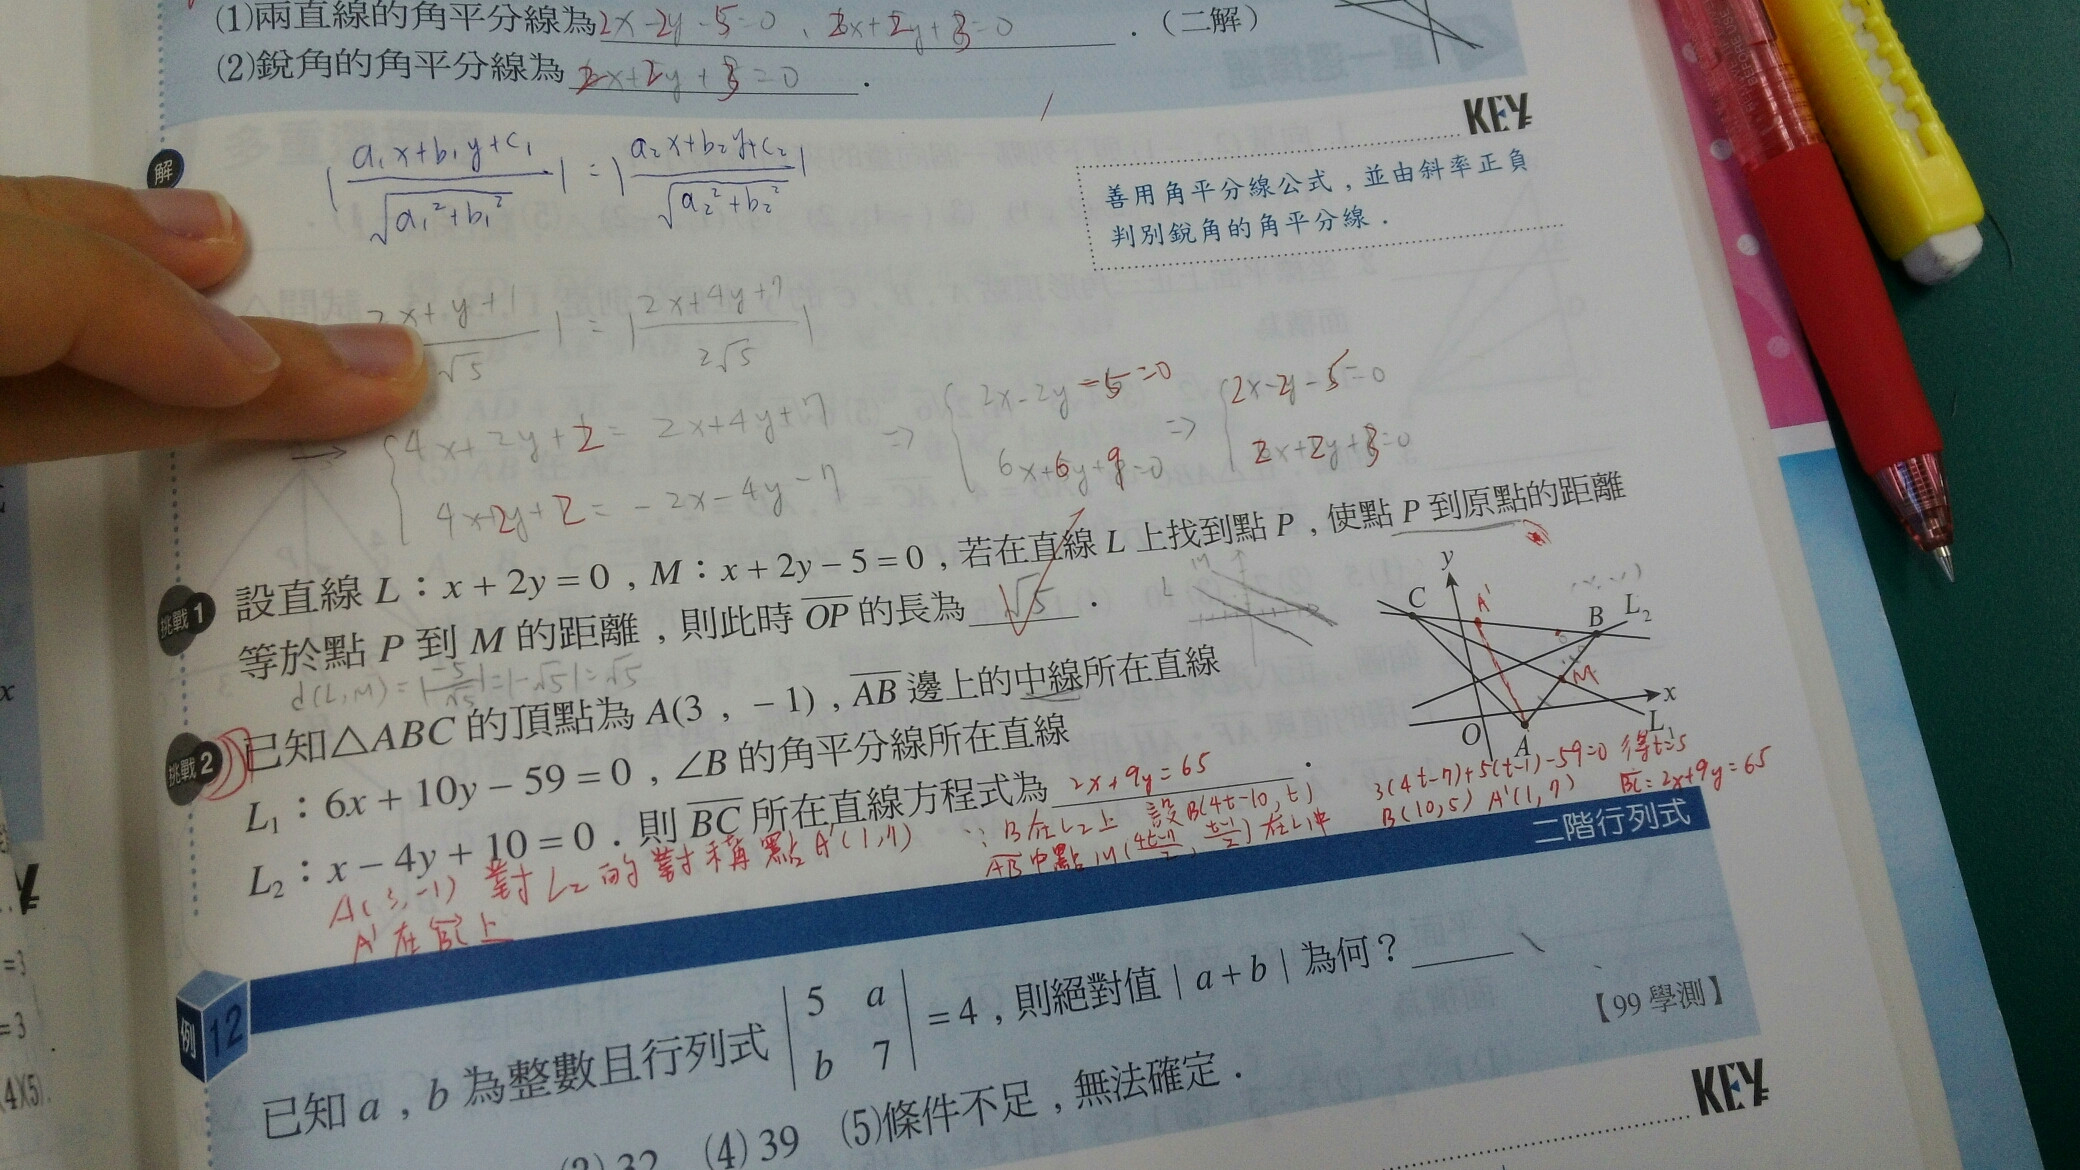 (1)兩直線的角平分線為2x-2y-5=0、2x+2y+3=0．（二解）
(2)銳角的角平分線為2x+2y+3=0．
KEY
解
|a₁x+b₁y+c₁/√a₁²+b₁²|=|a₂x+b₂y+c₂/√a₂²+b₂²|
善用角平分線公式，並由斜率正負
判別銳角的角平分線．
2x+y+1/√5|=|2x+4y+7/2√5|
→{4x+2y+2=2x+4y+7 => {2x-2y-5=0 => {2x-2y-5=0
4x+2y+2=-2x-4y-7 6x+6y+9=0 2x+2y+3=0
挑戰1 設直線L：x+2y=0，M：x+2y-5=0，若在直線L上找到點P，使點P到原點的距離
等於點P到M的距離，則此時OP的長為√5．
d(L,M)=|-5/√5|=|-√5|=√5
M
L
挑戰2 已知△ABC的頂點為A(3，-1)，AB邊上的中線所在直線
L₁：6x+10y-59=0，∠B的角平分線所在直線
L₂：x-4y+10=0．則BC所在直線方程式為2x+9y=65．
y
C
A'
B
L₂
M
x
O
A
L₁
A(3,-1)對L₂的對稱點A'(1,7)
A'在BC上
∵B在L₂上 設B(4t-10,t)
AB中點M(4t-7/2,t-1/2)在L₁中
3(4t-7)+5(t-1)-59=0 得t=5
B(10,5) A'(1,7) BC=2x+9y=65
二階行列式
例12
已知a，b為整數且行列式|5 a
b 7|=4，則絕對值|a+b|為何？
【99學測】
(4)39 (5)條件不足，無法確定．
KEY
x
=3
=3
(4)(5).